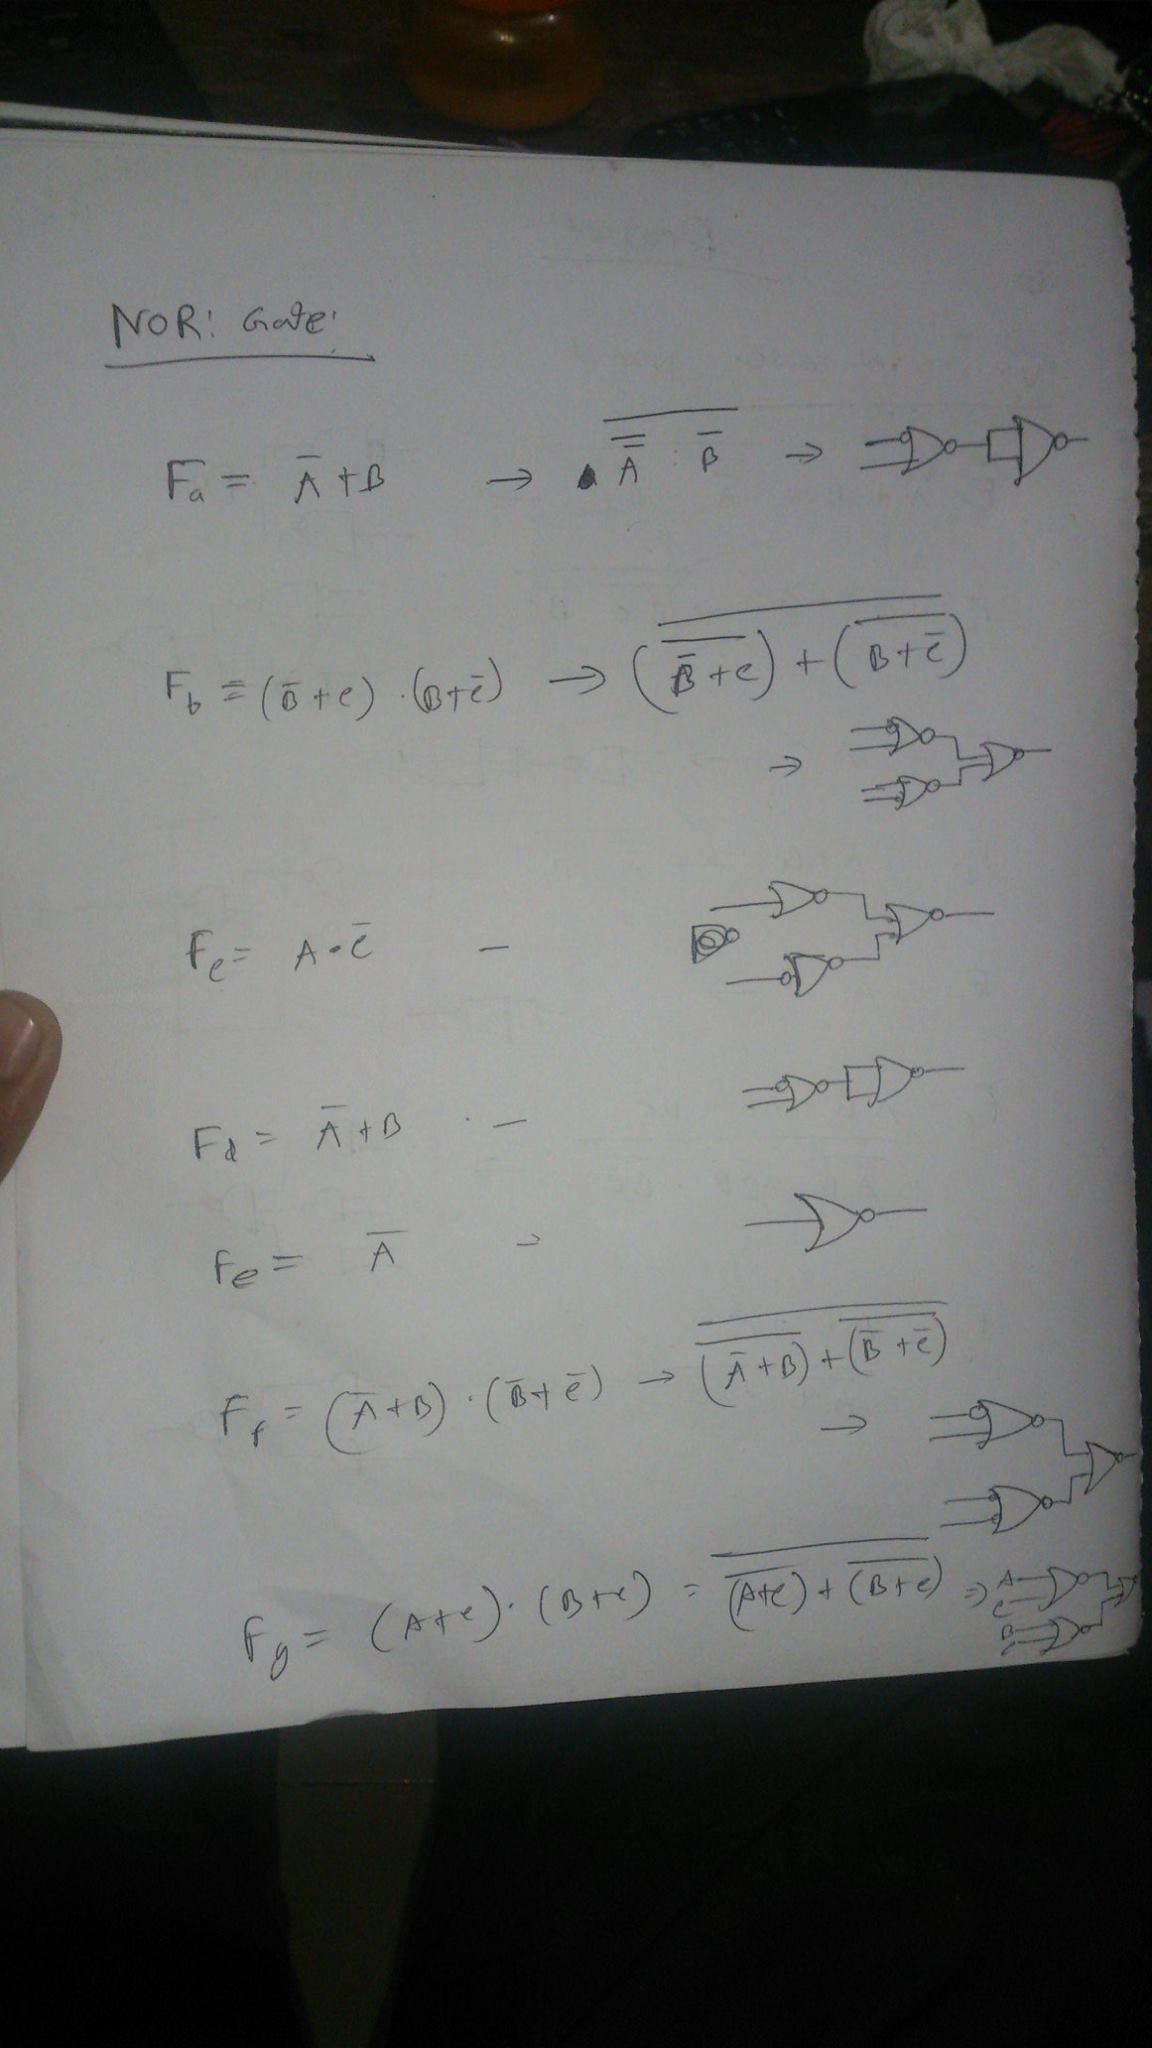 NOR: Gate:
Fa = A̅ + B → \overline{\overline{\overline{A}} . \overline{B}} →
Fb = (B̅ + c) . (B + c̅) → \overline{(\overline{\overline{B} + c}) + (\overline{B + \overline{c}})}
→
Fc = A . c̅ –
Fd = A̅ + B –
Fe = A̅ -
Ff = (A̅ + B) . (B̅ + c̅) → \overline{\overline{(\overline{A} + B)} + \overline{(\overline{B} + \overline{c})}}
→
Fg = (A + c) . (B + c) = \overline{\overline{(A + c)} + \overline{(B + c)}} ⇒ A
C
B